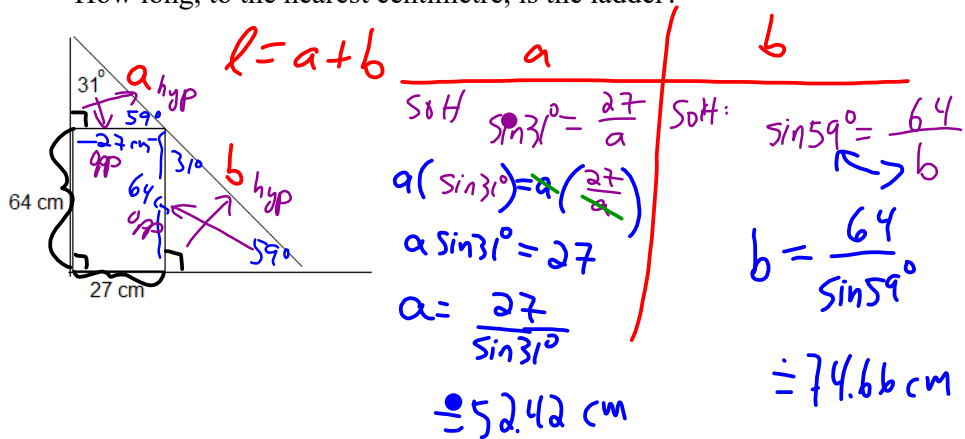 How long, to the nearest centimetre, is the ladder?
l = a + b
a
b
31°
a hyp
59°
27 cm
opp
31°
b hyp
64 cm
64 cm
opp
59°
27 cm
SOH sin31° = 27/a
a(sin31°) = a(27/a)
a sin31° = 27
a = 27/sin31°
≐ 52.42 cm
SOH: sin59° = 64/b
b = 64/sin59°
≐ 74.66 cm